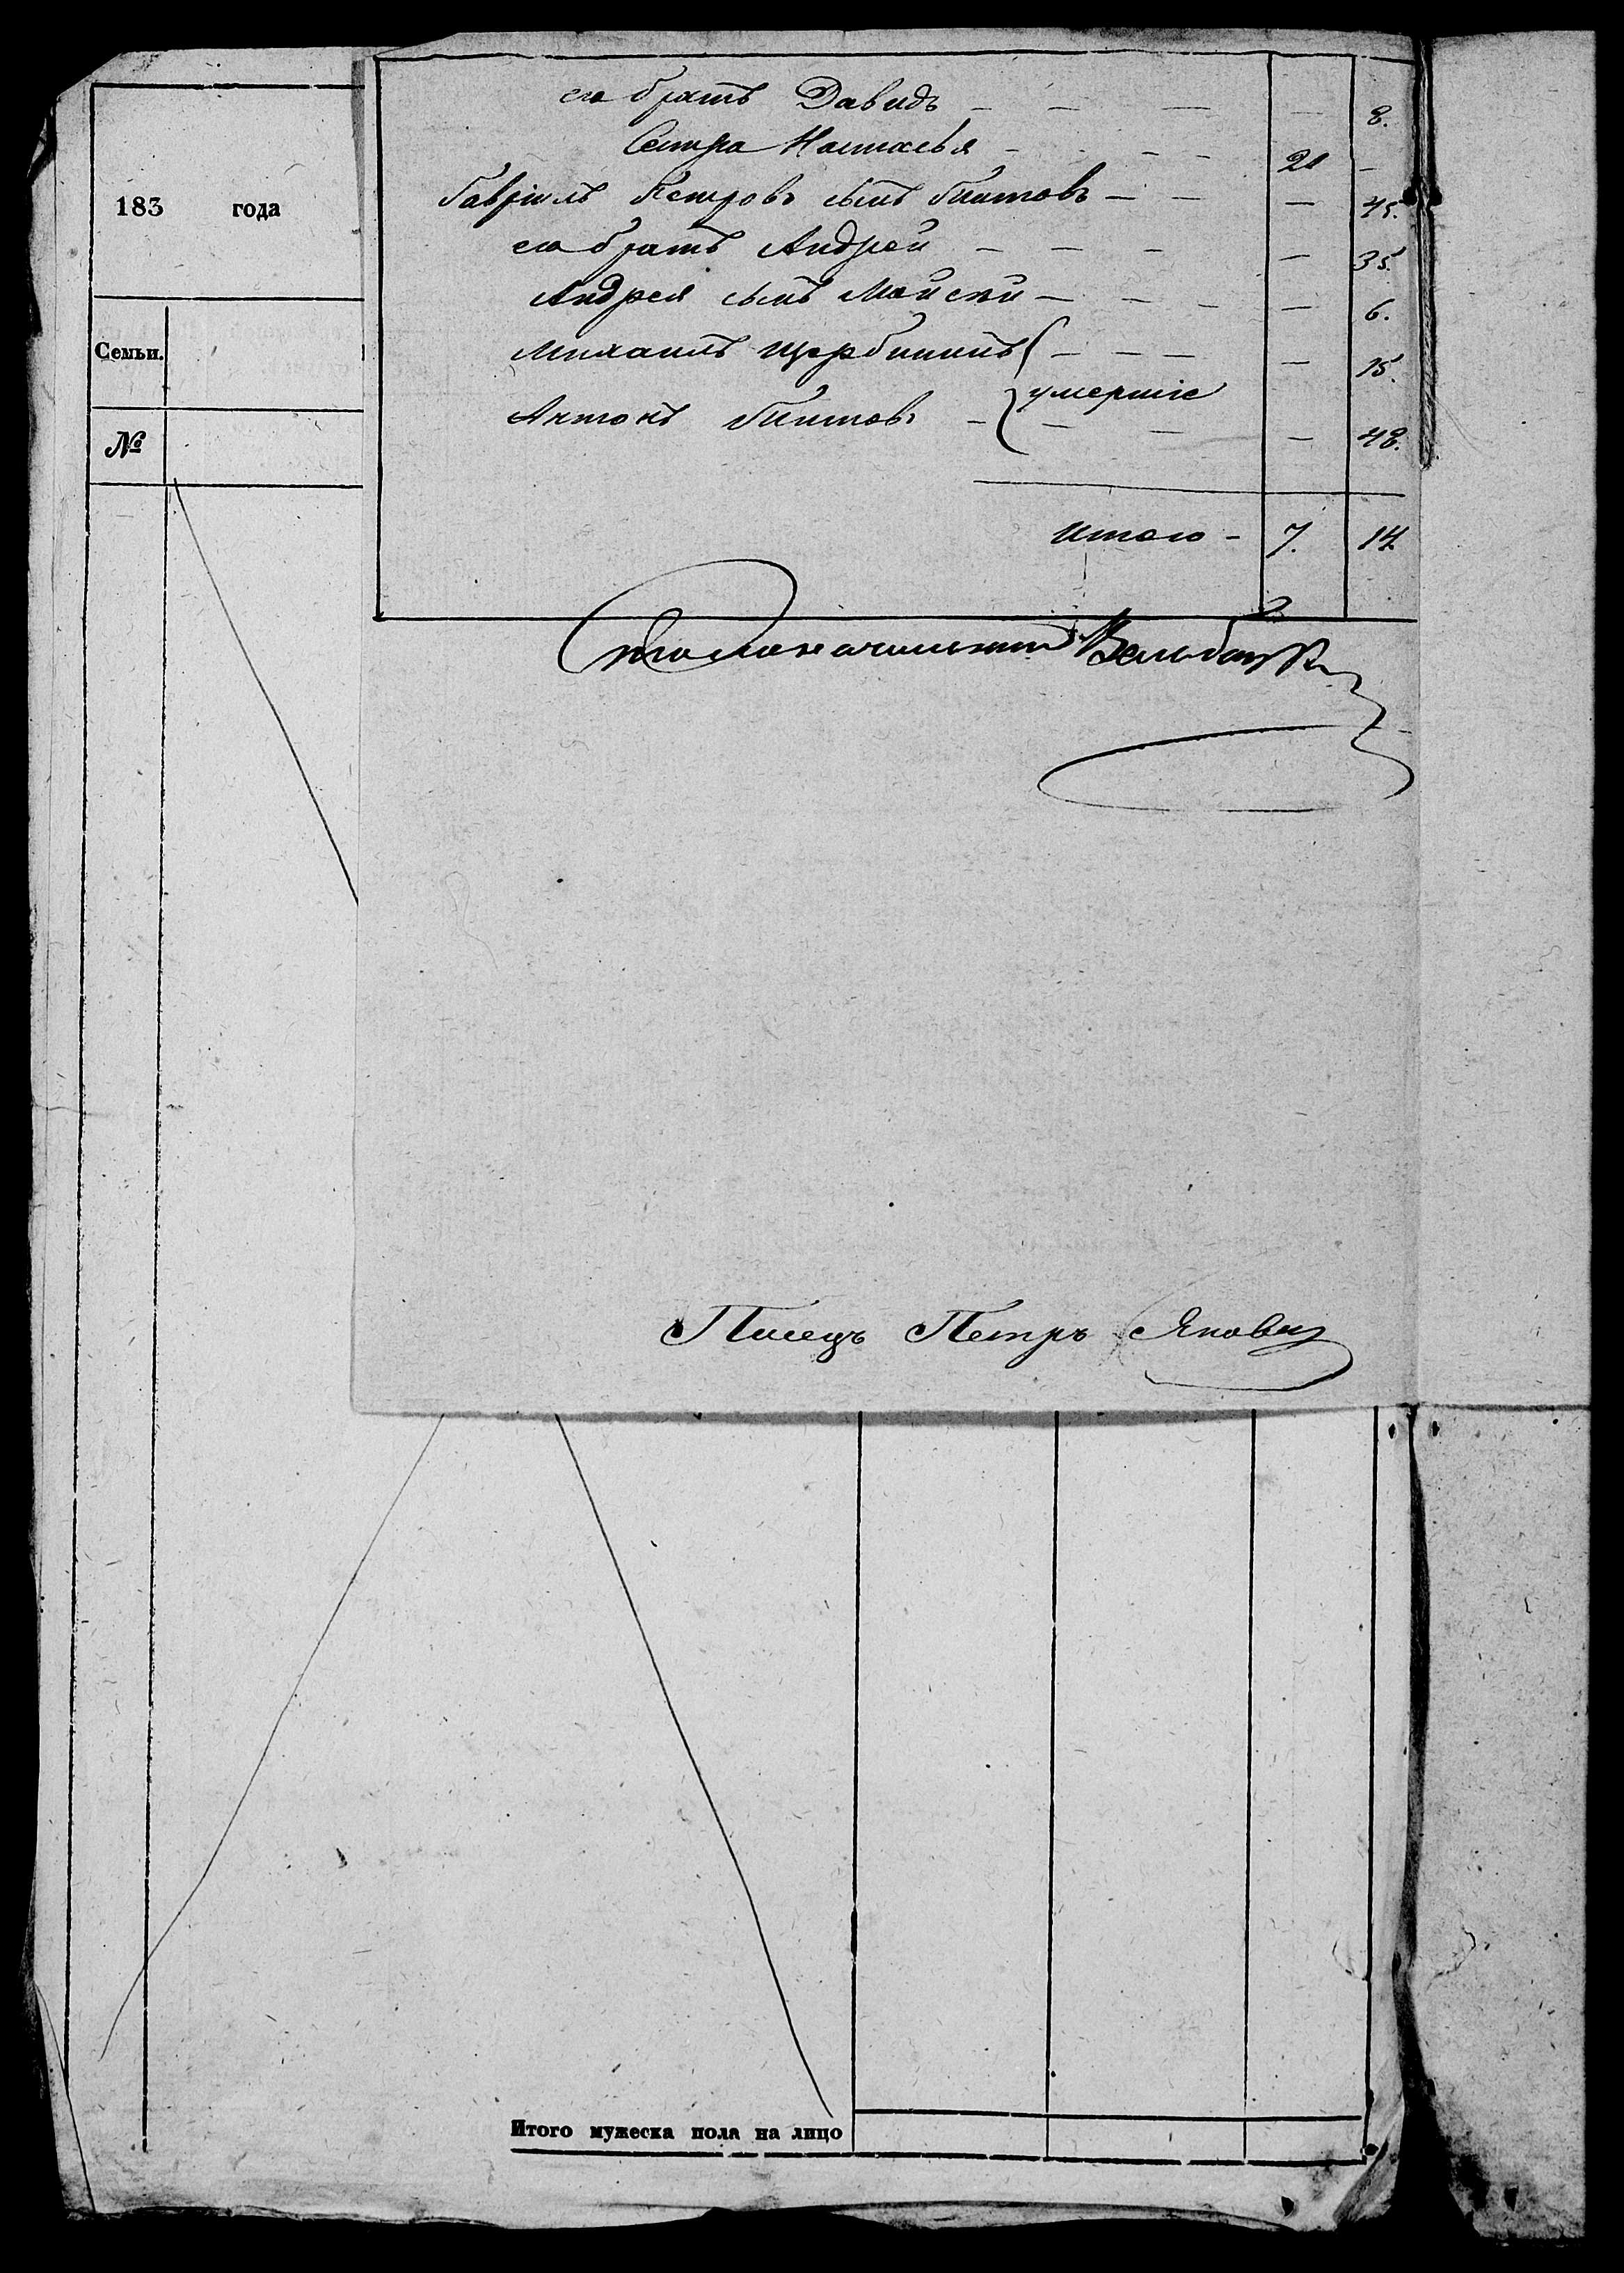 183 года
Семьи.
№
его братъ Давидъ - - - - 8.
Сестра Настасья - - - - 21 -
Гавріилъ Петровъ сынъ - - - 45.
его братъ Андрей - - - - 35.
Андрея сынъ - - - - 6.
Михаилъ Щербининъ - - - - 15.
умершіе
Антонъ - - - - 48.
Итого - 7. 14
Столоначальникъ
Писецъ Петръ
Итого мужеска пола на лицо